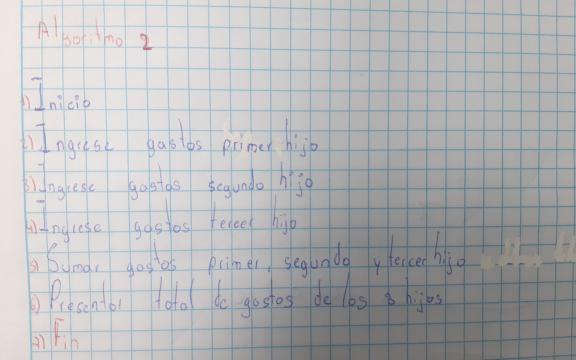 Algoritmo 2
1) Inicio
2) Ingrese gastos primer hijo
3) Ingrese gastos segundo hijo
4) Ingrese gastos tercer hijo
5) Sumar gastos primer, segundo y tercer hijo
6) Presentar total de gastos de los 3 hijos
7) Fin